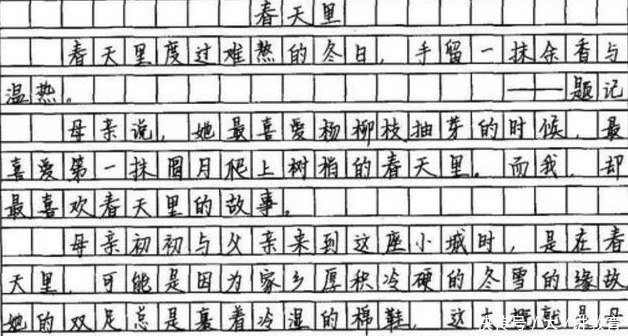 春天里
春天里度过难熬的冬日，手留一抹余香与
温热。——题记
母亲说，她最喜爱杨柳枝抽芽的时候，最
喜爱第一抹圆月爬上树梢的春天里。而我，却
最喜欢春天里的故事。
母亲初初与父亲来到这座小城时，是在春
天里，可能是因为家乡厚积冷硬的冬雪的缘故，
她的双足总是裹着冷湿的棉鞋，这